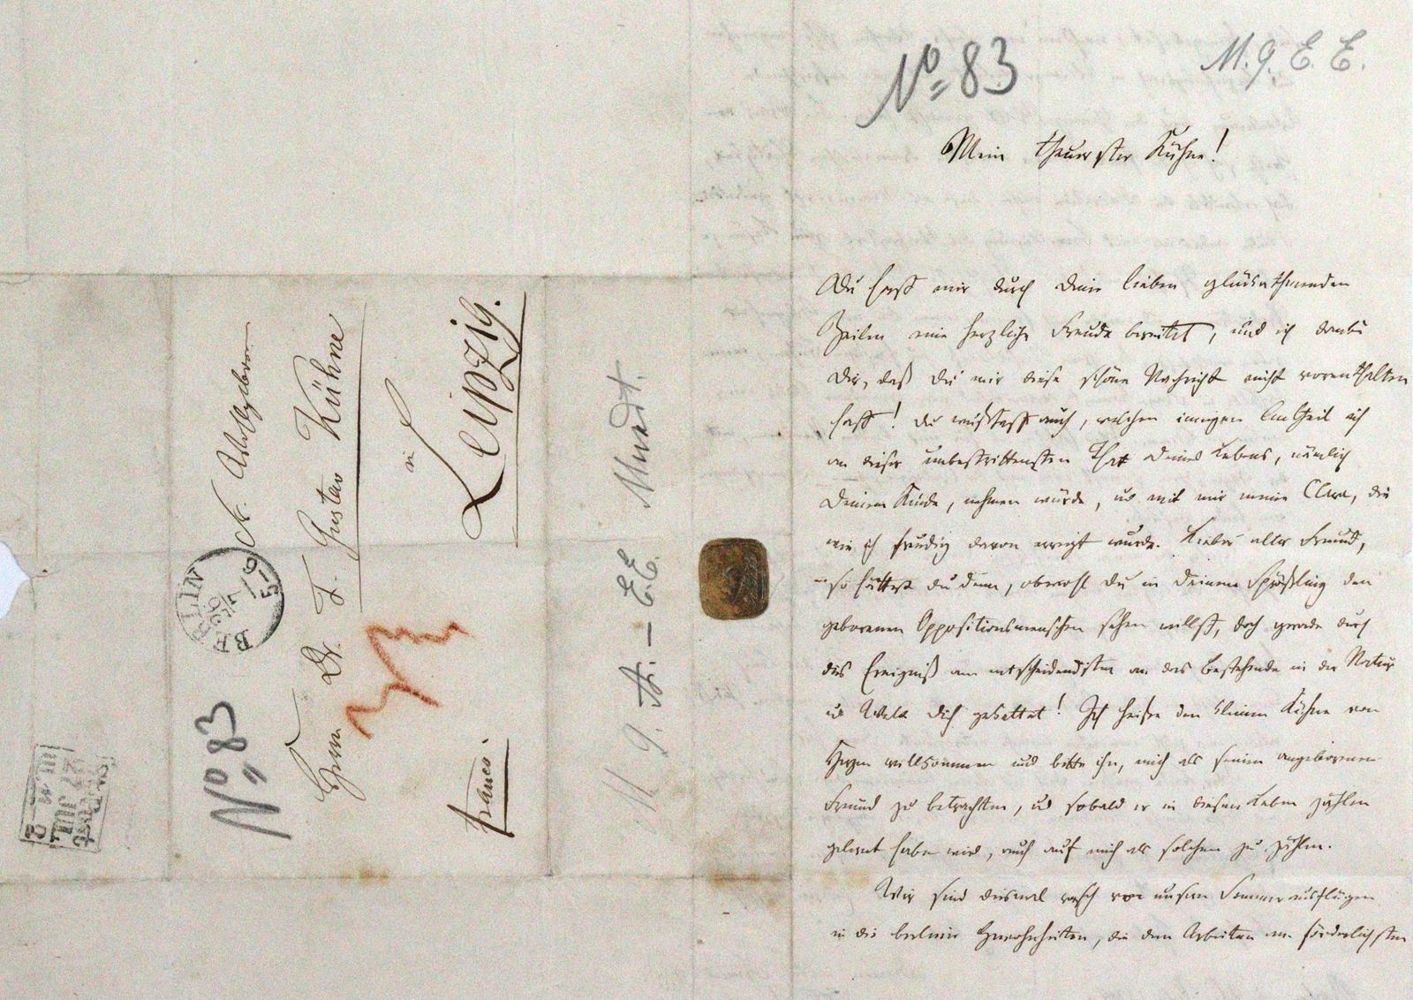 No 83
M. g. E. E.
Mein theuerster Kühne!
Du hast mir durch Deine lieben glückathmenden
Zeilen eine herzliche Freude bereitet, und ich danke
Dir, daß Du mir diese schöne Nachricht nicht vorenthalten
hast! Du wußtest auch, welchen innigen Antheil ich
an dieser unbestrittensten That Deines Lebens, nämlich
Deinem Kinde, nehmen würde, und mit mir meine Clara, die
wie ich freudig davon erregt wurde. Lieber alter Freund,
so hättest Du denn, obwohl Du in Deinem Sprößling den
geborenen Oppositionsmenschen sehen willst, doch gerade durch
dies Ereigniß am entscheidendsten an das Bestehende in der Natur
und Welt Dich gekettet! Ich heiße den kleinen Kühne von
Herzen willkommen und bitte ihn, mich als seinen angeborenen
Freund zu betrachten, und sobald er in diesem Leben zählen
gelernt haben wird, auch auf mich als solchen zu zählen.
Wir sind diesmal rasch von unsern Sommerausflügen
in die berliner Gewohnheiten, die dem Arbeiten am förderlichsten
Sr. Wohlgeboren
Herrn Dr. F. Gustav Kühne
in
Leipzig.
franco.
No 83
BERLIN
5-6
M g. Th. – EE. Mundt.